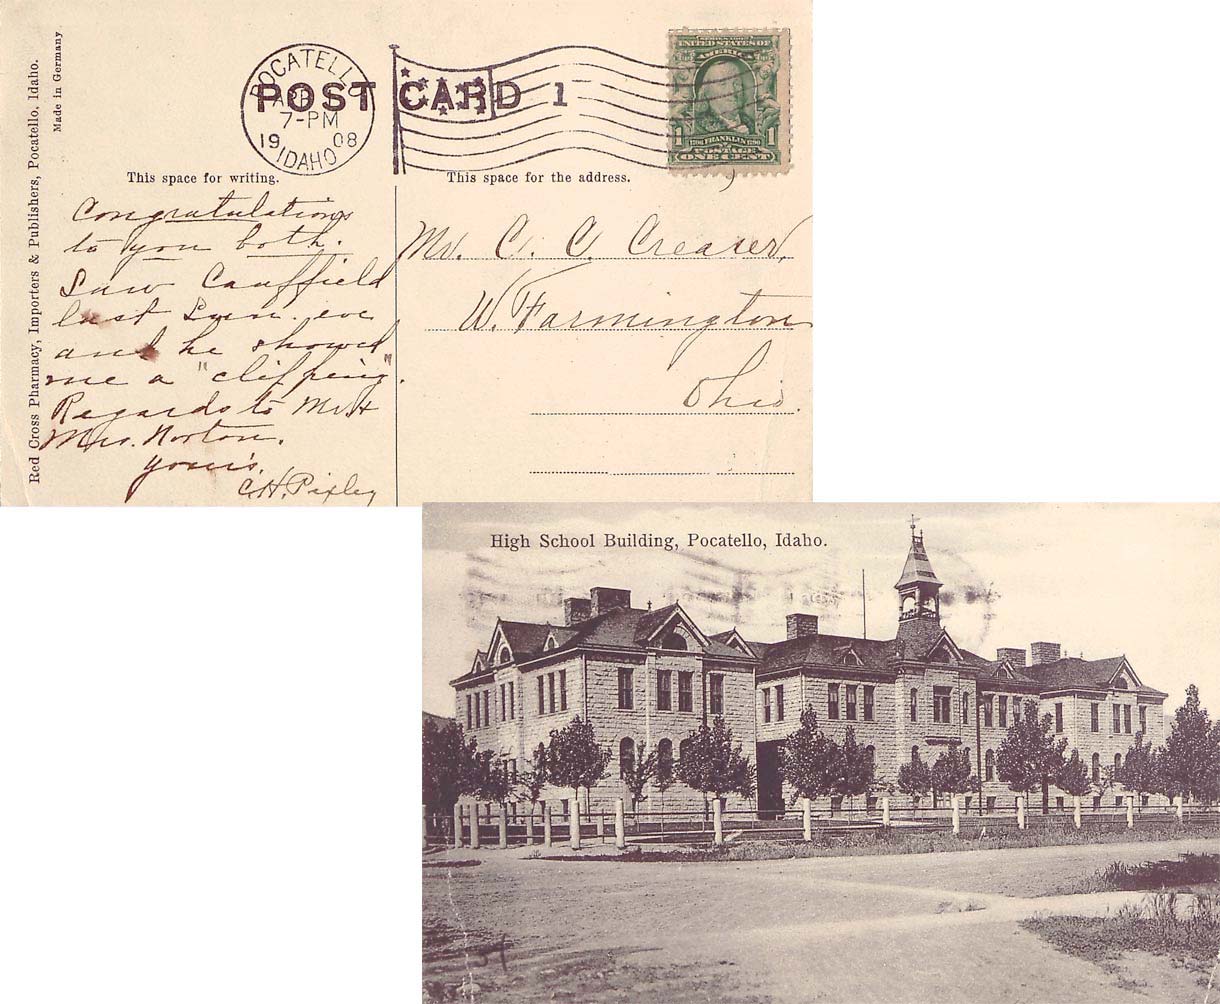 Red Cross Pharmacy, Importers & Publishers, Pocatello, Idaho.
Made in Germany
POCATELLO
APR
7-PM
1908
IDAHO
POST CARD
1
UNITED STATES OF
AMERICA
1
1706 FRANKLIN 1790
POSTAGE
ONE CENT
This space for writing.
This space for the address.
Congratulations
to you both.
Saw Cauffield
last Sun. eve
and he showed
me a "clipping".
Regards to Mr. +
Mrs. Norton.
yours,
C.H. Pixley
Mr. C. C. Creaser,
W. Farmington
Ohio.
High School Building, Pocatello, Idaho.